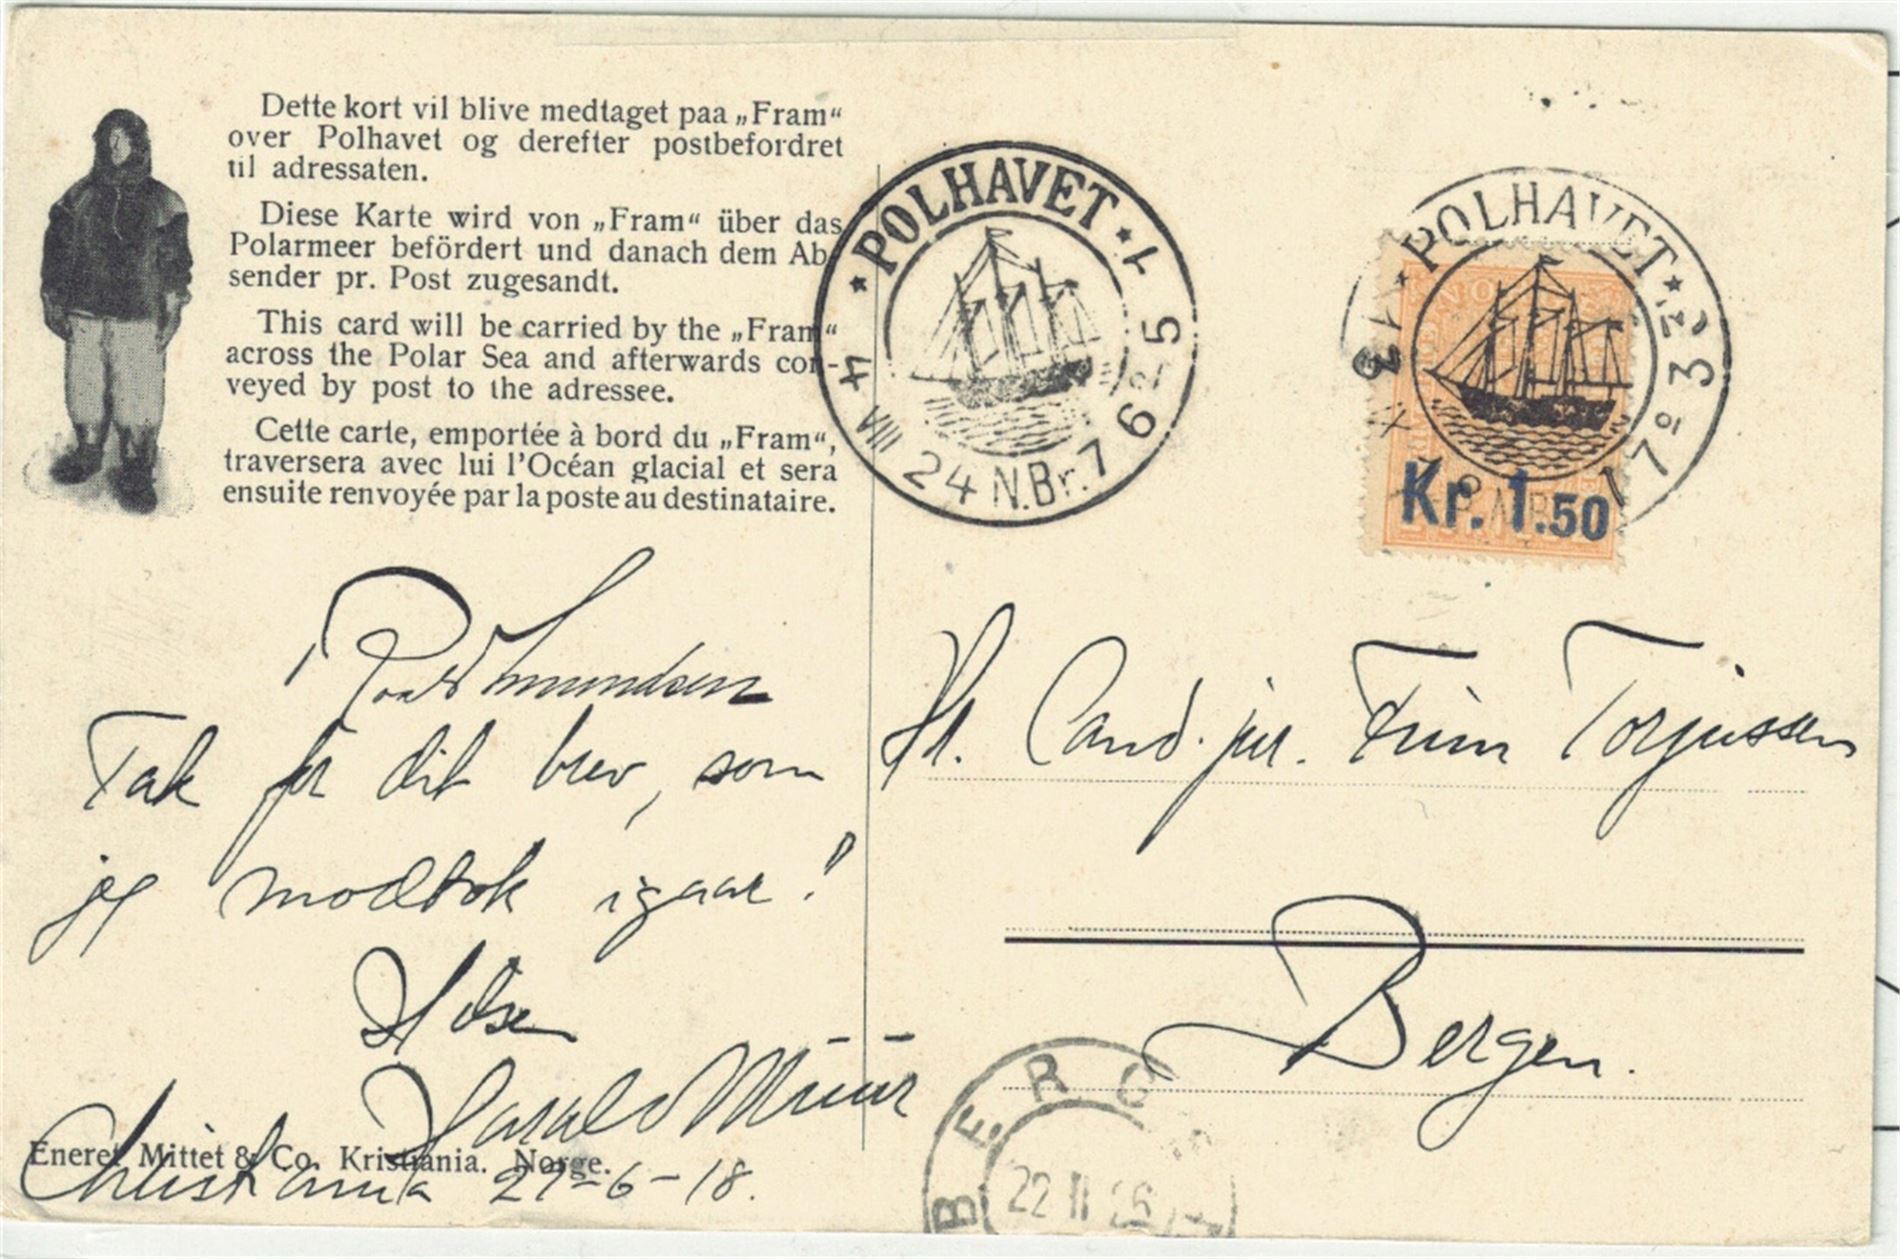 Dette kort vil blive medtaget paa „Fram“
over Polhavet og derefter postbefordret
til adressaten.
Diese Karte wird von „Fram“ über das
Polarmeer befördert und danach dem Ab-
sender pr. Post zugesandt.
This card will be carried by the „Fram“
across the Polar Sea and afterwards con-
veyed by post to the adressee.
Cette carte, emportée à bord du „Fram“,
traversera avec lui l'Océan glacial et sera
ensuite renvoyée par la poste au destinataire.
Roald Amundsen
Tak for dit brev, som
jeg modtok igaar!
Hilsen
Harald
Christiania 27-6-18.
Eneret Mittet & Co. Kristiania. Norge.
POLHAVET
4 VIII 24 N.Br. 76
POLHAVET
Kr. 1.50
Hr. Cand. jur. Finn Torjussen
Bergen.
BERG
22 II 26